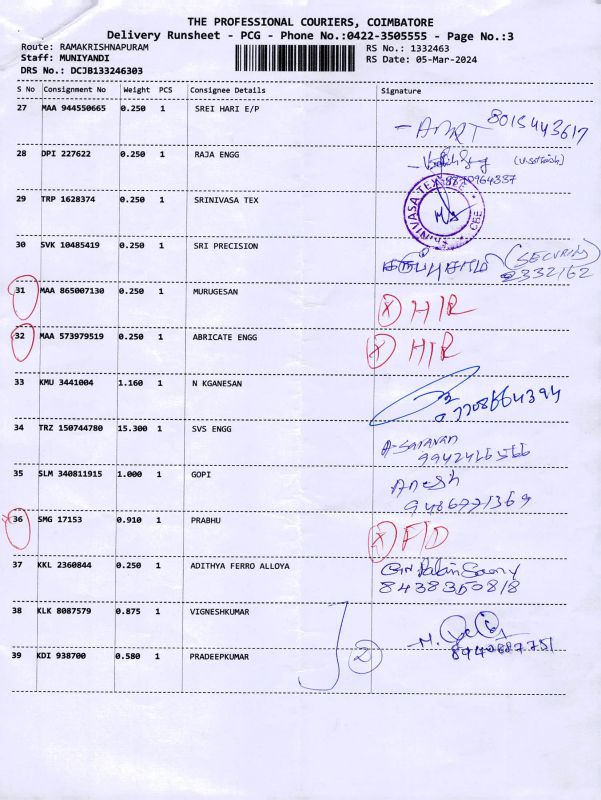 THE PROFESSIONAL COURIERS, COIMBATORE
Delivery Runsheet - PCG - Phone No.:0422-3505555 - Page No.:3
Route: RAMAKRISHNAPURAM RS No.: 1332463
Staff: MUNIYANDI RS Date: 05-Mar-2024
DRS No.: DCJB133246303
S No Consignment No Weight PCS Consignee Details Signature
27 MAA 944550665 0.250 1 SREI HARI E/P 8015443617
28 DPI 227622 0.250 1 RAJA ENGG
29 TRP 1628374 0.250 1 SRINIVASA TEX
30 SVK 10485419 0.250 1 SRI PRECISION (SECURITY)
2332162
31 MAA 865007130 0.250 1 MURUGESAN X H/R
32 MAA 573979519 0.250 1 ABRICATE ENGG X H/R
33 KMU 3441004 1.160 1 N KGANESAN 7708664394
34 TRZ 150744780 15.300 1 SVS ENGG A-Saravan
9942426566
35 SLM 340811915 1.000 1 GOPI Anesh
9486771369
36 SMG 17153 0.910 1 PRABHU X F/D
37 KKL 2360844 0.250 1 ADITHYA FERRO ALLOYA
8438350818
38 KLK 8087579 0.875 1 VIGNESHKUMAR
39 KDI 938700 0.580 1 PRADEEPKUMAR 2 8940687751